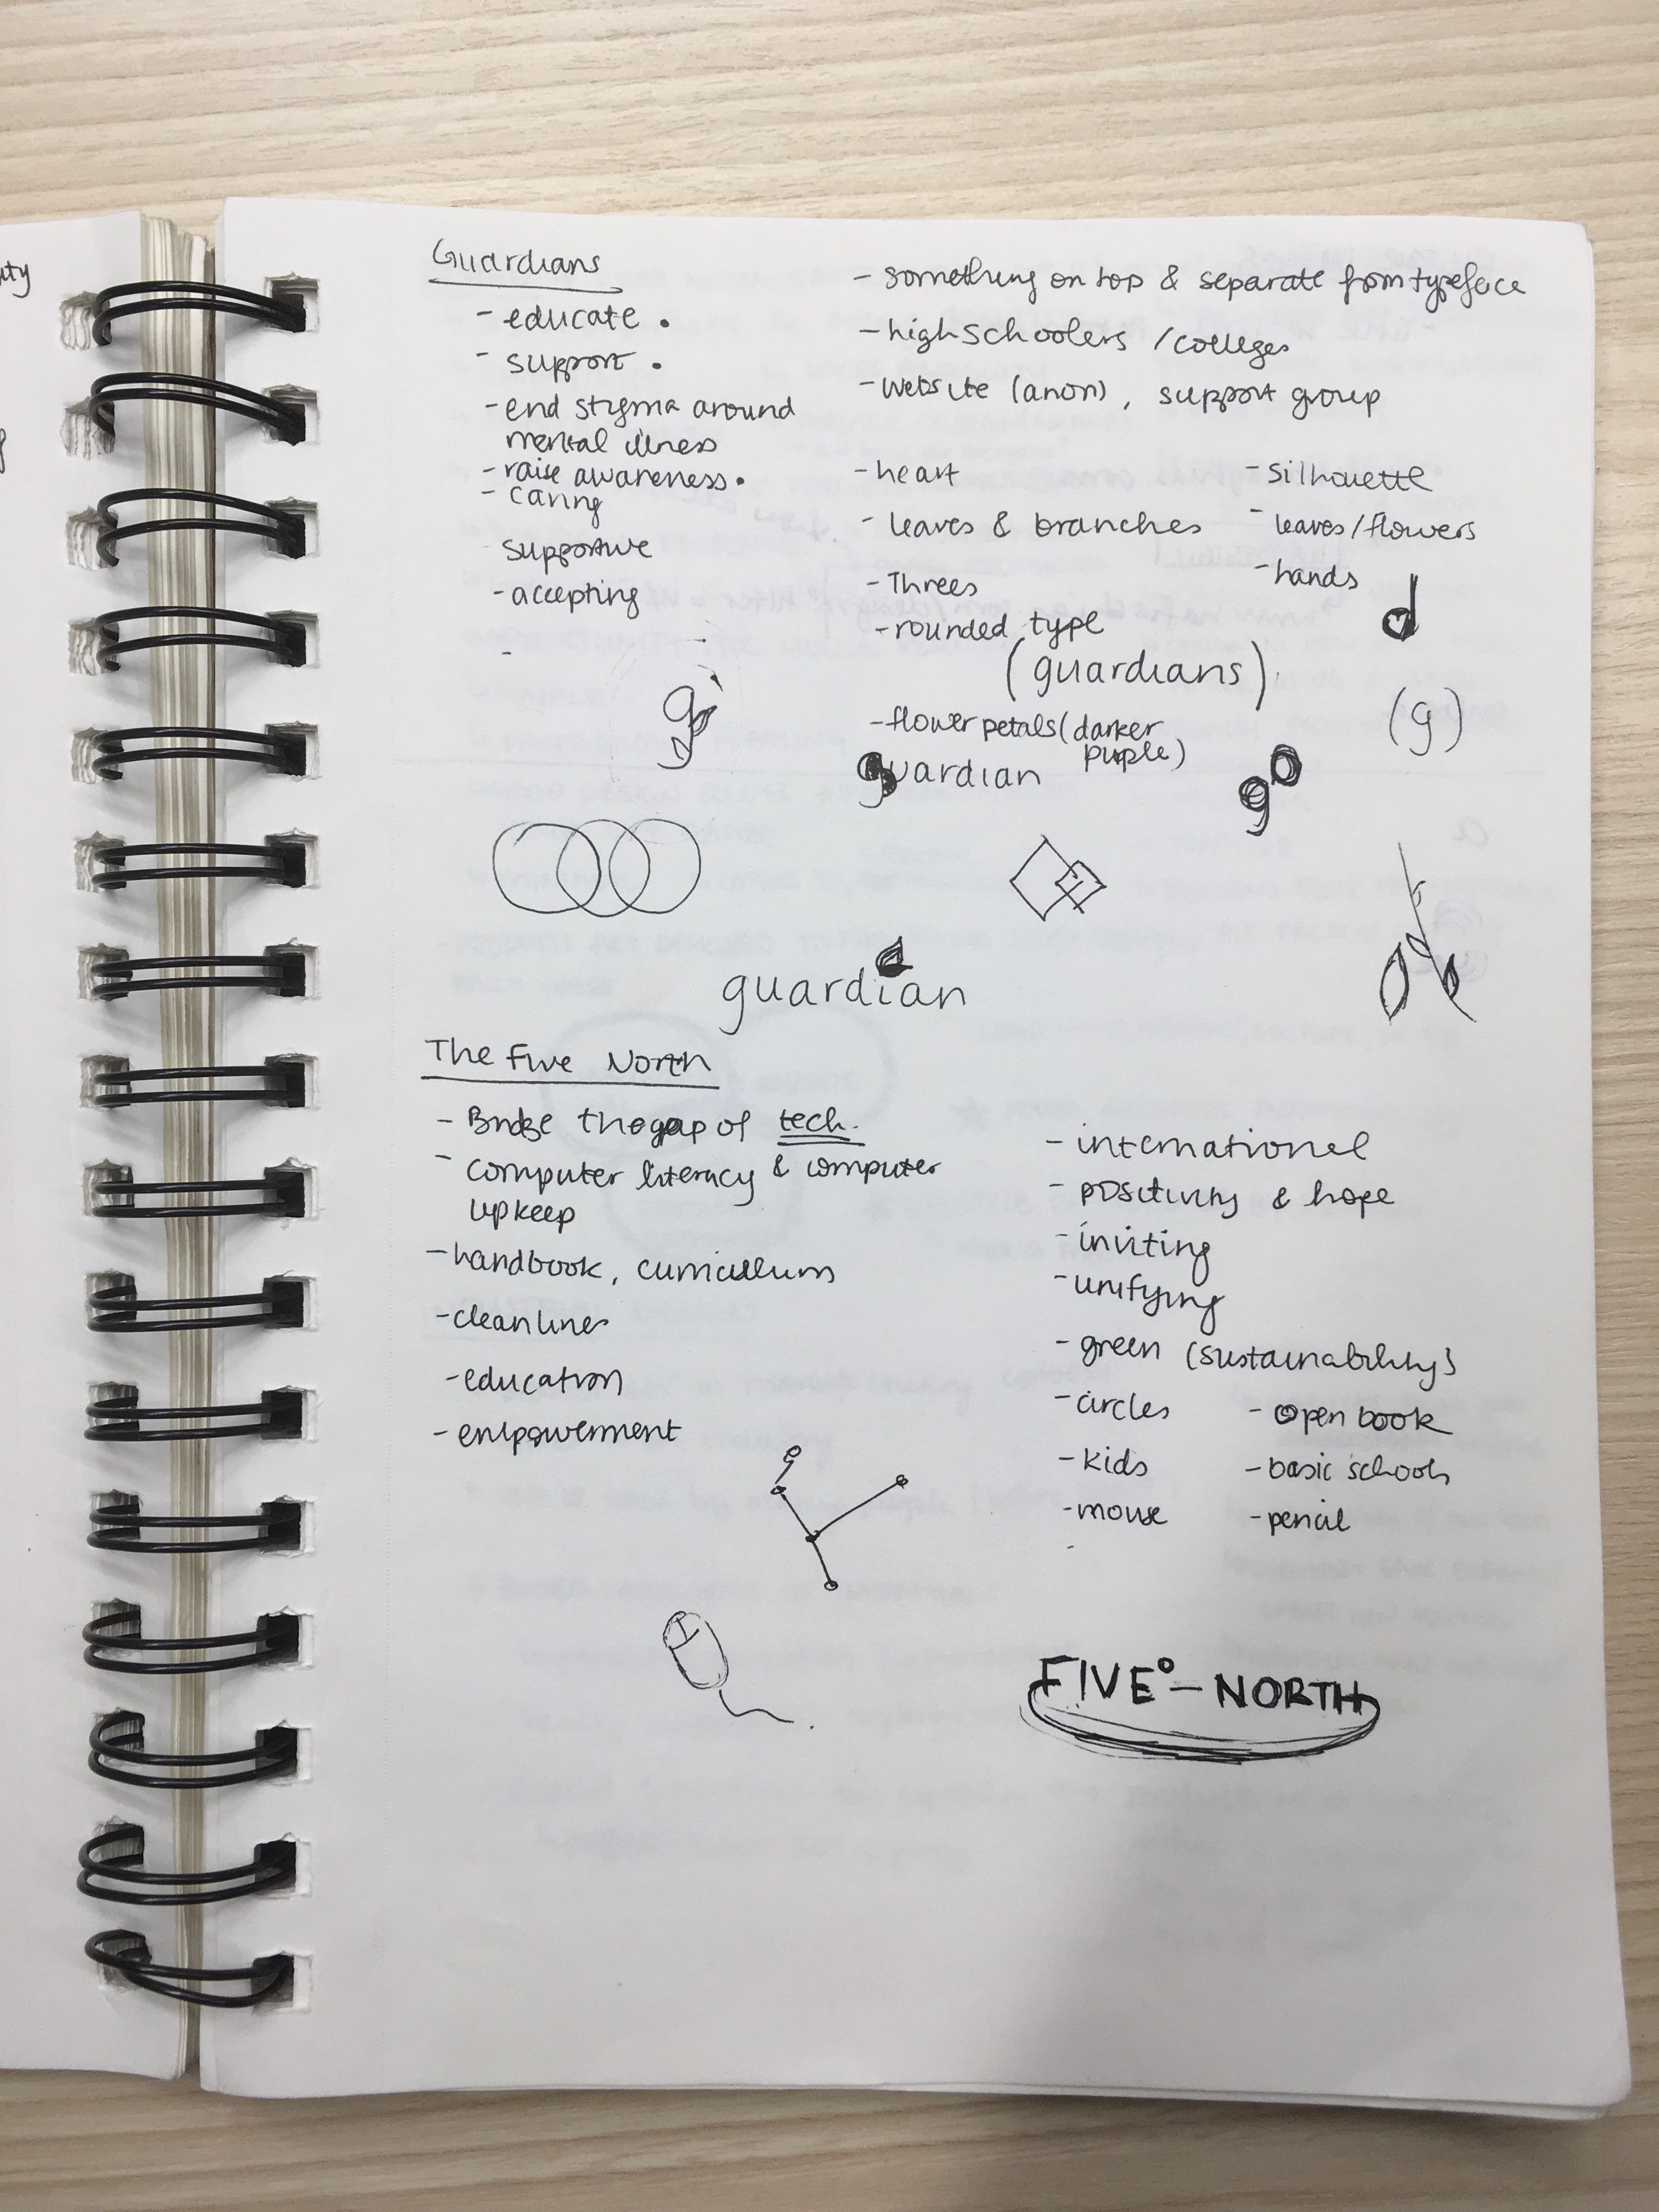 Guardians
- educate •
- support •
- end stigma around
mental illness
- raise awareness •
- caring
supportive
- accepting
-
- something on top & separate from typeface
- highschoolers / colleges
- website (anon), support group
- heart
- leaves & branches
- Threes
- rounded type
(guardians)
- flower petals (darker
purple)
- silhouette
- leaves/flowers
- hands
d
g
(g)
guardian
g
guardian
The Five North
- Bridge the gap of tech.
- computer literacy & computer
upkeep
- handbook, curricullum
- clean lines
- education
- empowerment
- international
- positivity & hope
- inviting
- unifying
- green (sustainability)
- circles
- kids
- mouse
- open book
- basic schools
- pencil
FIVE° – NORTH